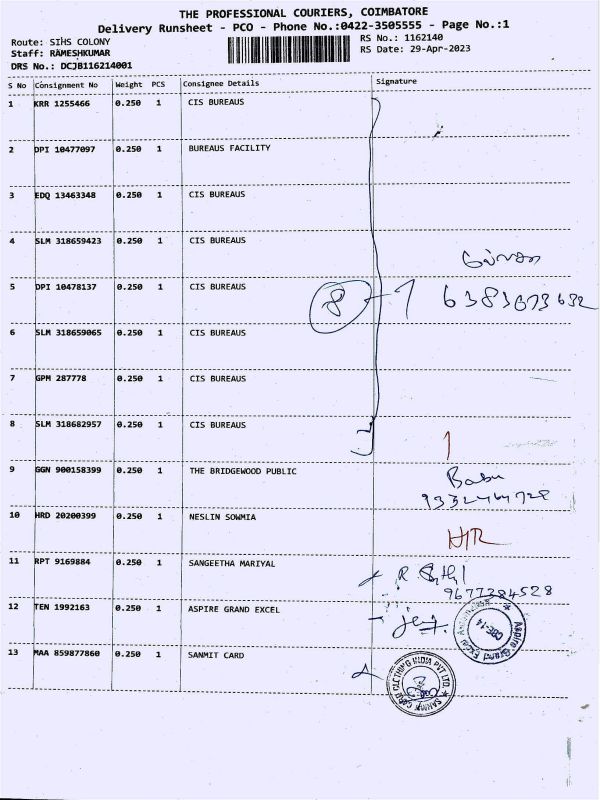 THE PROFESSIONAL COURIERS, COIMBATORE
Delivery Runsheet - PCO - Phone No.:0422-3505555 - Page No.:1
Route: SIHS COLONY
RS No.: 1162140
Staff: RAMESHKUMAR
RS Date: 29-Apr-2023
DRS No.: DCJB116214001
S No Consignment No Weight PCS Consignee Details Signature
1 KRR 1255466 0.250 1 CIS BUREAUS
2 DPI 10477097 0.250 1 BUREAUS FACILITY
3 EDQ 13463348 0.250 1 CIS BUREAUS
4 SLM 318659423 0.250 1 CIS BUREAUS
5 DPI 10478137 0.250 1 CIS BUREAUS
8 - 1 6383673632
6 SLM 318659065 0.250 1 CIS BUREAUS
7 GPM 287778 0.250 1 CIS BUREAUS
8 SLM 318682957 0.250 1 CIS BUREAUS
1
9 GGN 900158399 0.250 1 THE BRIDGEWOOD PUBLIC
Babu
10 HRD 20200399 0.250 1 NESLIN SOWMIA
H/R
11 RPT 9169884 0.250 1 SANGEETHA MARIYAL
9677384528
12 TEN 1992163 0.250 1 ASPIRE GRAND EXCEL
Aspire Grand Excel
CBE-14
13 MAA 859877860 0.250 1 SANMIT CARD
CLOTHING INDIA PVT LTD